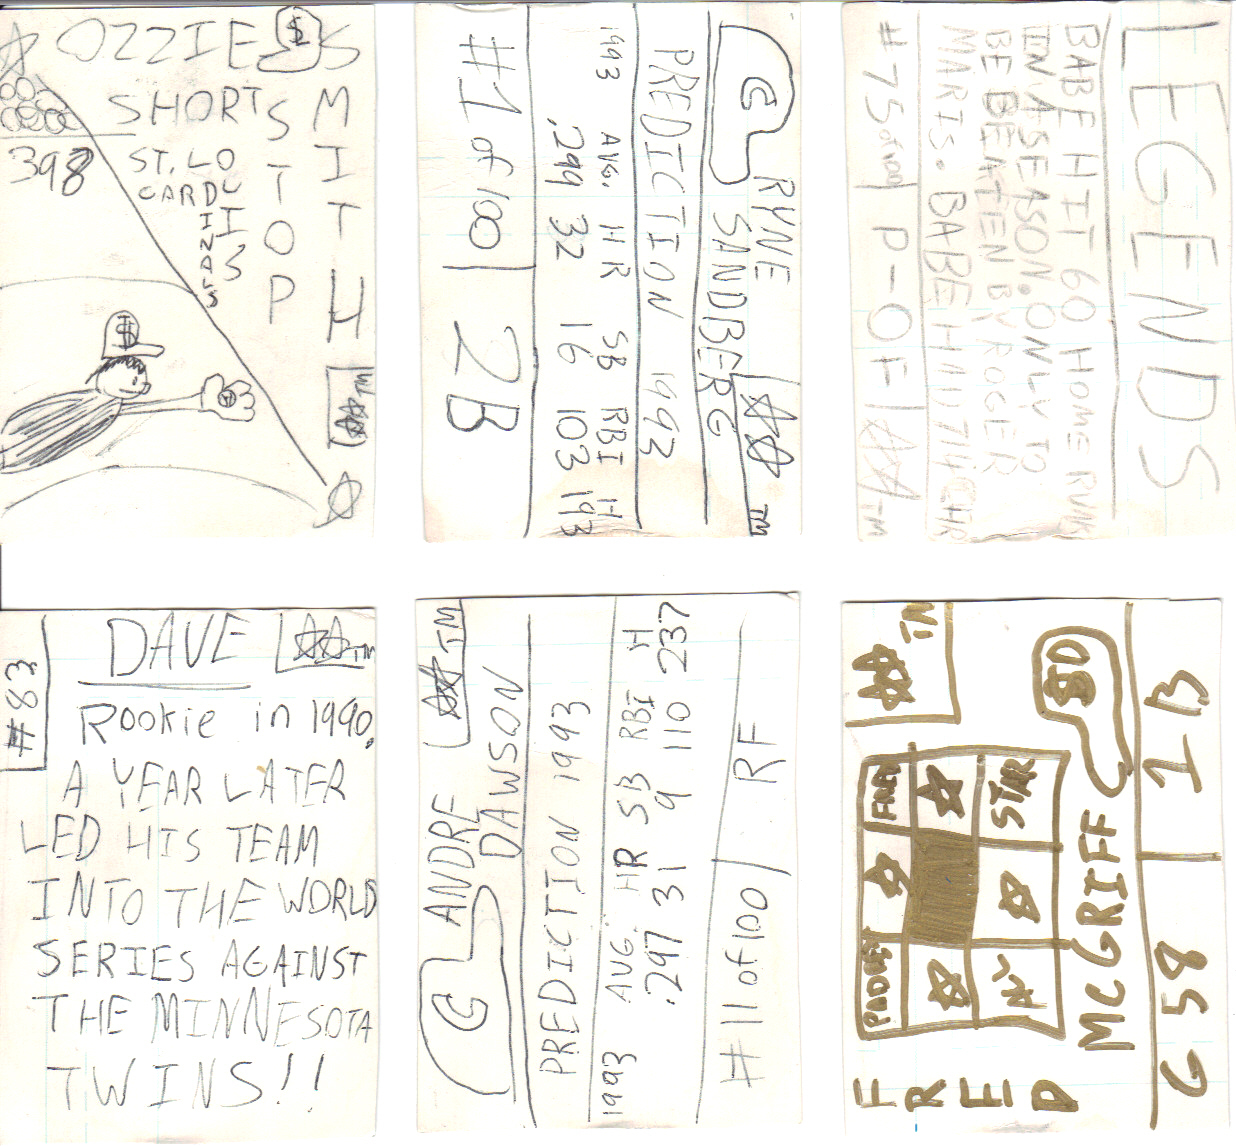 OZZIE SMITH
SHORTSTOP
398
ST. LOUIS
CARDINALS
$
TM
LEGENDS
BABE HIT 60 HOME RUNS
IN A SEASON. ONLY TO
BE BEATEN BY ROGER
MARIS. BABE HAD 714
#75 of 100 P-OF TM
C RYNE
SANDBERG TM
PREDICTION 1993
1993 AVG. HR SB RBI H
.299 32 16 103 193
#1 of 100 2B
#83
DAVE TM
Rookie in 1990.
A YEAR LATER
LED HIS TEAM
INTO THE WORLD
SERIES AGAINST
THE MINNESOTA
TWINS!!
C ANDRE
DAWSON TM
PREDICTION 1993
1993 AVG HR SB RBI H
.297 31 9 110 237
#11 of 100 RF
TM
PADRES FRED
STAR
FRED
MCGRIFF SD
G 58 1B